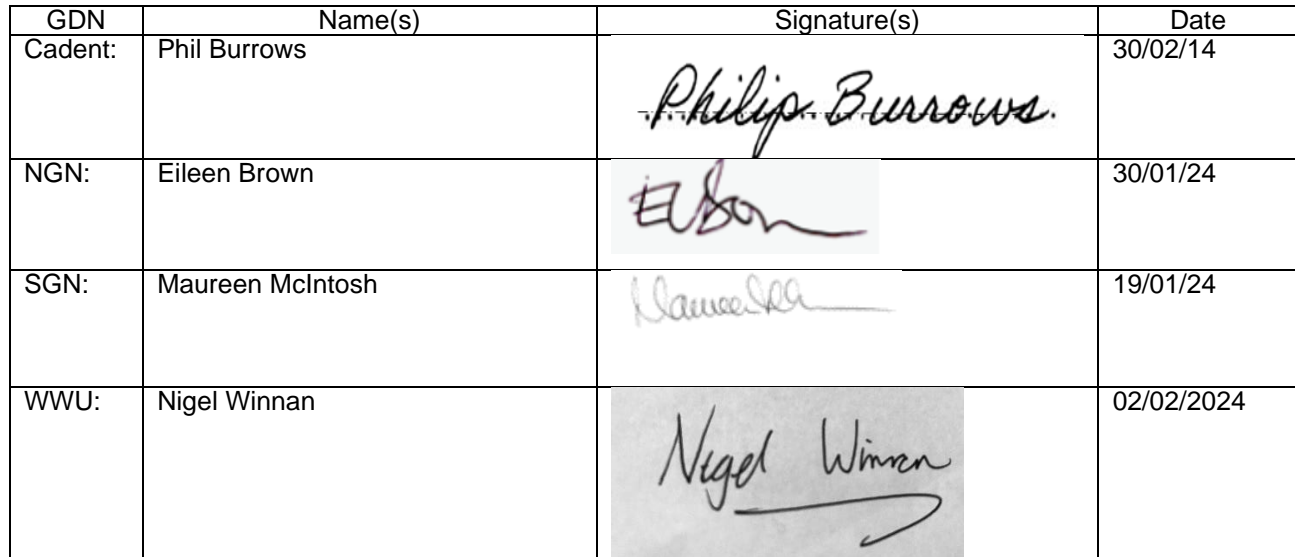 GDN Name(s) Signature(s) Date
Cadent: Phil Burrows Philip Burrows. 30/02/14
NGN: Eileen Brown 30/01/24
SGN: Maureen McIntosh 19/01/24
WWU: Nigel Winnan Nigel Winnan 02/02/2024